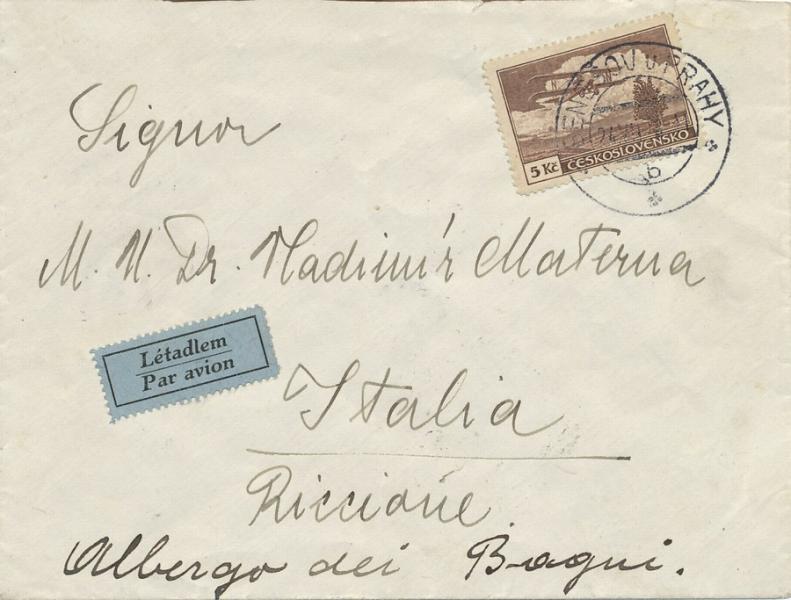 Signor
M. U. Dr. Vladimír Materna
Létadlem
Par avion
Italia
Riccione
Albergo dei Bagni.
5 Kč ČESKOSLOVENSKO
U PRAHY
b